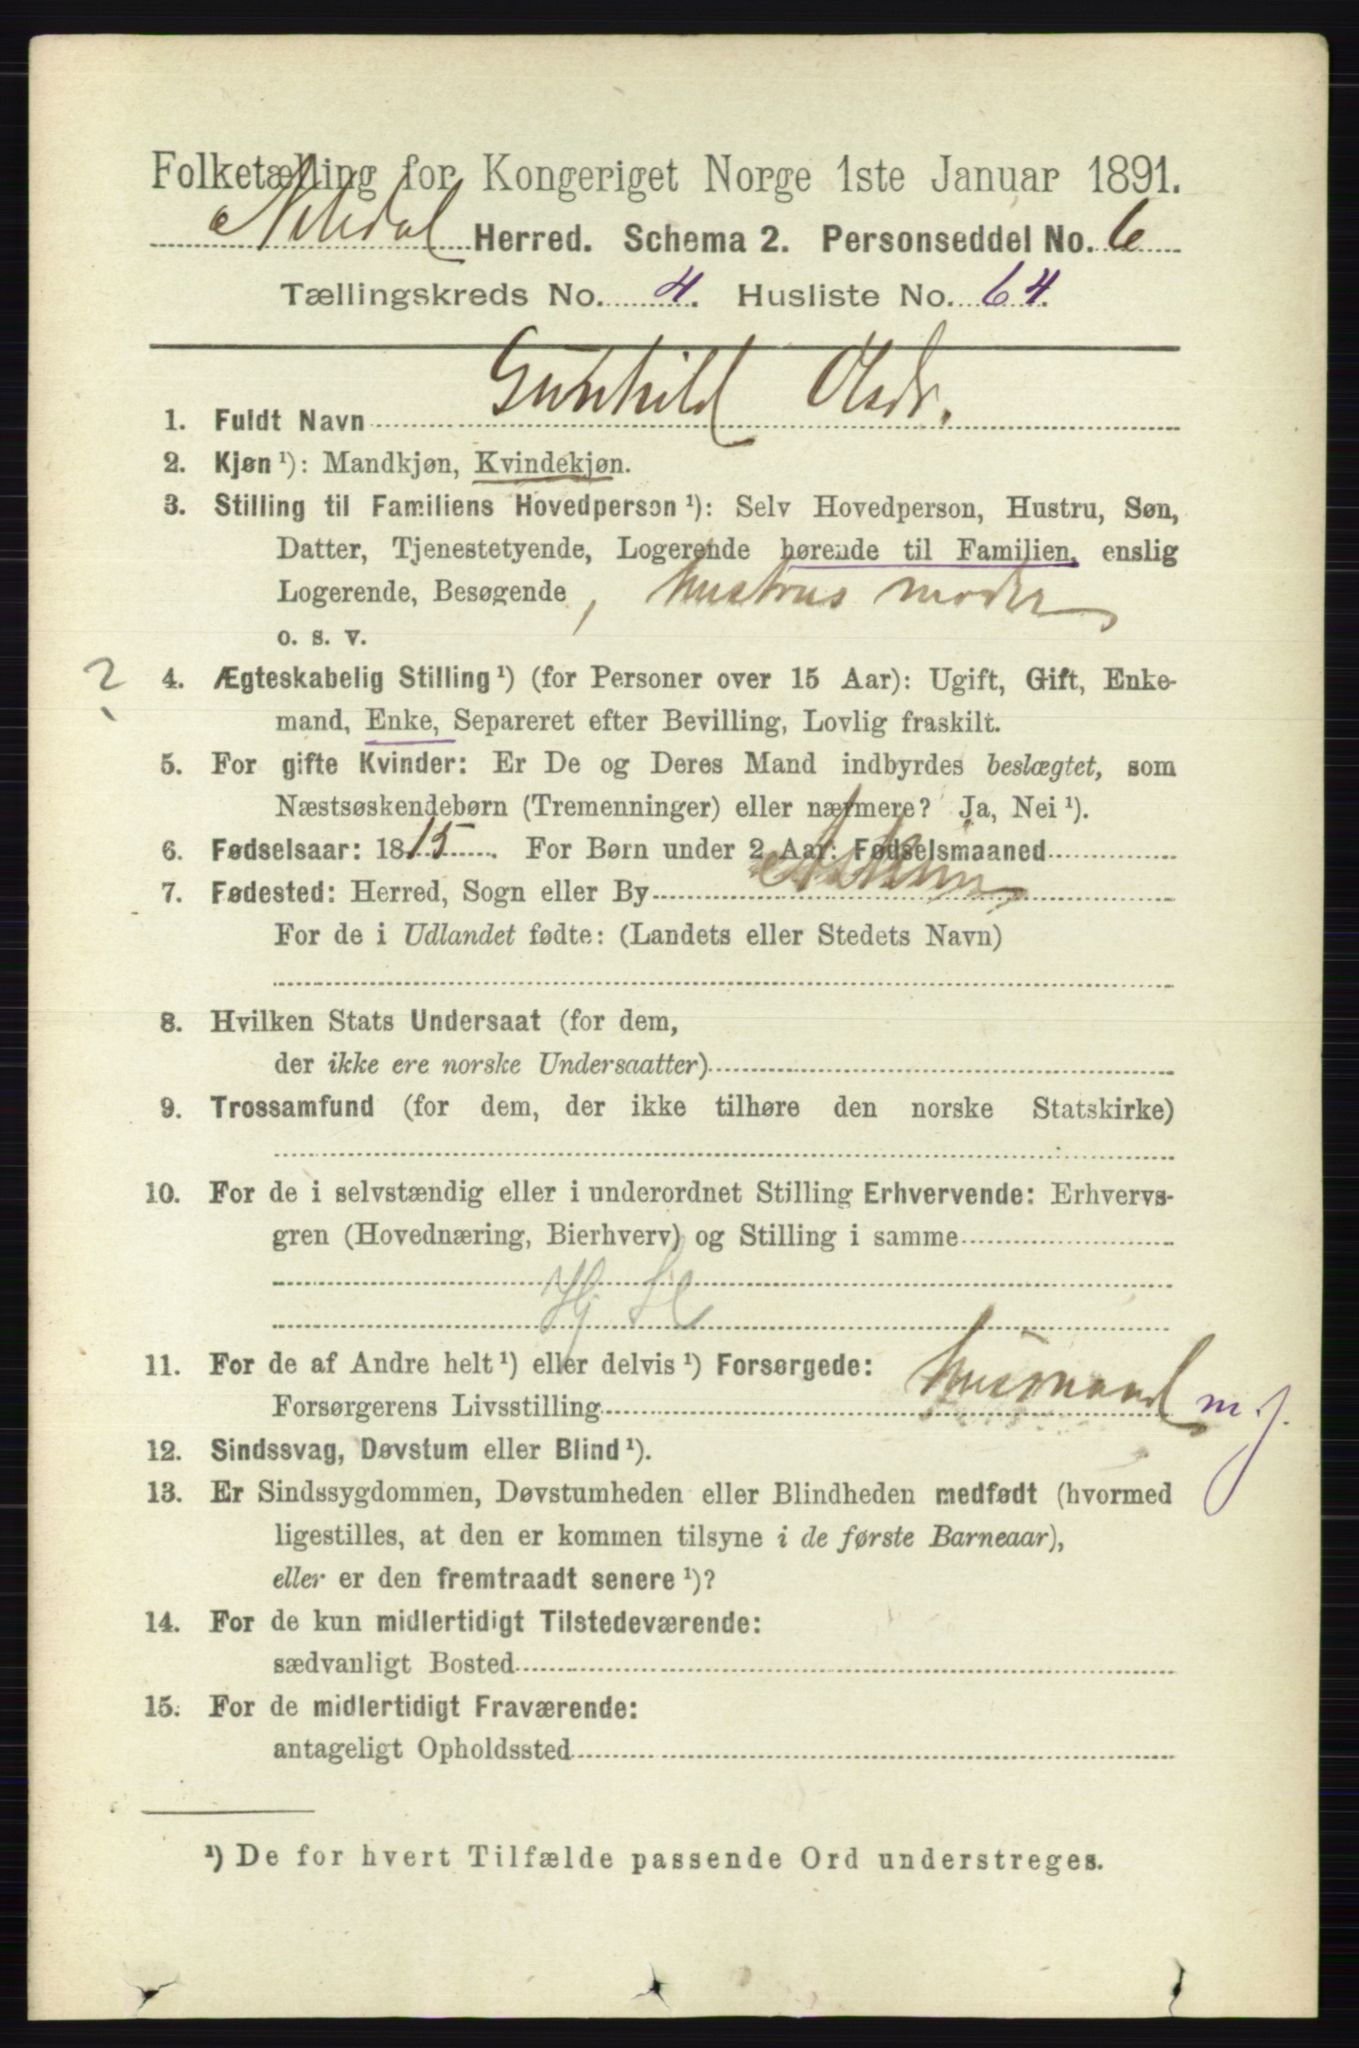 Folketælling for Kongeriget Norge 1ste Januar 1891.
Nitedal Herred. Schema 2. Personseddel No. 6
Tællingskreds No. 4. Husliste No. 64.
1. Fuldt Navn Gunhild Olsdr.
2. Kjøn ¹): Mandkjøn, Kvindekjøn.
3. Stilling til Familiens Hovedperson ¹): Selv Hovedperson, Hustru, Søn,
Datter, Tjenestetyende, Logerende hørende til Familien, enslig
Logerende, Besøgende , hustrus moder
o. s. v.
? 4. Ægteskabelig Stilling ¹) (for Personer over 15 Aar): Ugift, Gift, Enke-
mand, Enke, Separeret efter Bevilling, Lovlig fraskilt.
5. For gifte Kvinder: Er De og Deres Mand indbyrdes beslægtet, som
Næstsøskendebørn (Tremenninger) eller nærmere? Ja, Nei ¹).
6. Fødselsaar: 1815. For Børn under 2 Aar: Fødselsmaaned
7. Fødested: Herred, Sogn eller By Askim
For de i Udlandet fødte: (Landets eller Stedets Navn)
8. Hvilken Stats Undersaat (for dem,
der ikke ere norske Undersaatter)
9. Trossamfund (for dem, der ikke tilhøre den norske Statskirke)
10. For de i selvstændig eller i underordnet Stilling Erhvervende: Erhvervs-
gren (Hovednæring, Bierhverv) og Stilling i samme
Hj
11. For de af Andre helt ¹) eller delvis ¹) Forsørgede:
Forsørgerens Livsstilling husmand m. j.
12. Sindssvag, Døvstum eller Blind ¹).
13. Er Sindssygdommen, Døvstumheden eller Blindheden medfødt (hvormed
ligestilles, at den er kommen tilsyne i de første Barneaar),
eller er den fremtraadt senere ¹)?
14. For de kun midlertidigt Tilstedeværende:
sædvanligt Bosted
15. For de midlertidigt Fraværende:
antageligt Opholdssted
¹) De for hvert Tilfælde passende Ord understreges.